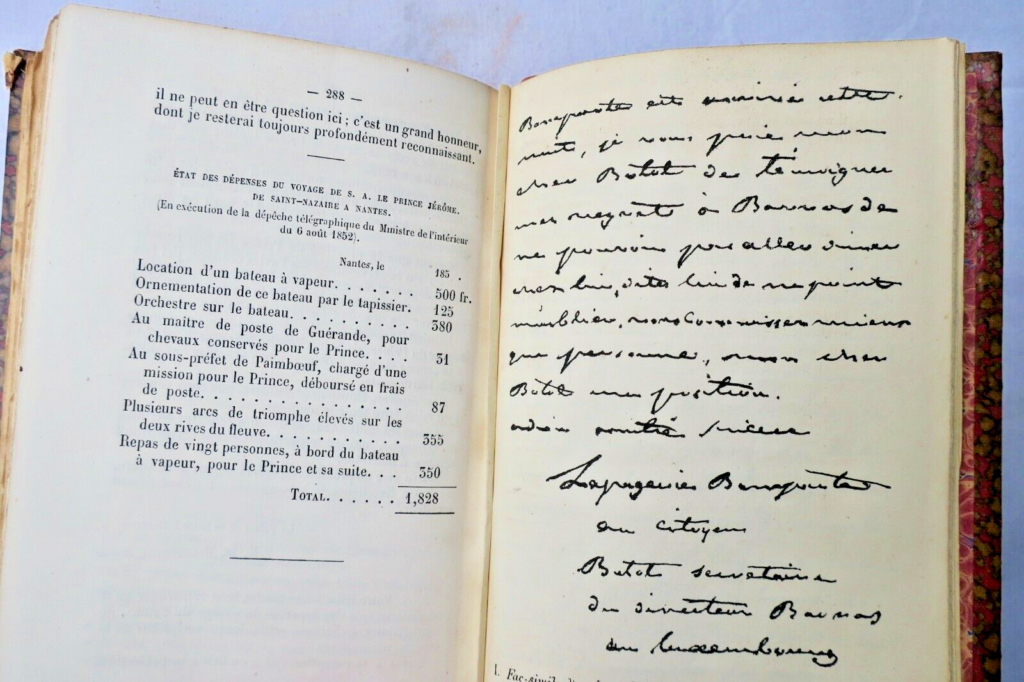 — 288 —
il ne peut en être question ici ; c'est un grand honneur,
dont je resterai toujours profondément reconnaissant.
ÉTAT DES DÉPENSES DU VOYAGE DE S. A. LE PRINCE JÉRÔME.
DE SAINT-NAZAIRE A NANTES.
(En exécution de la dépêche télégraphique du Ministre de l'intérieur
du 6 août 1852).
Nantes, le 185 .
Location d'un bateau à vapeur. . . . . . . . 500 fr.
Ornementation de ce bateau par le tapissier. 125
Orchestre sur le bateau. . . . . . . . . . 380
Au maitre de poste de Guérande, pour
chevaux conservés pour le Prince. . . . 31
Au sous-préfet de Paimbœuf, chargé d'une
mission pour le Prince, déboursé en frais
de poste. . . . . . . . . . . . . . . . 87
Plusieurs arcs de triomphe élevés sur les
deux rives du fleuve. . . . . . . . . . . 355
Repas de vingt personnes, à bord du bateau
à vapeur, pour le Prince et sa suite. . . 350
TOTAL. . . . . . 1,828
Bonaparte est arrivé cette
nuit, je vous prie mon
cher Botot de témoigner
mes regrets à Barras de
ne pouvoir pas aller diner
chez lui, dites lui de ne point
m'oublier, vous connoisser mieux
que personne, mon cher
Botot ma position.
adieu amitié sincère
Lapagerie Bonaparte
au citoyen
Botot secretaire
du directeur Barras
au luxembourg
1. Fac-simile